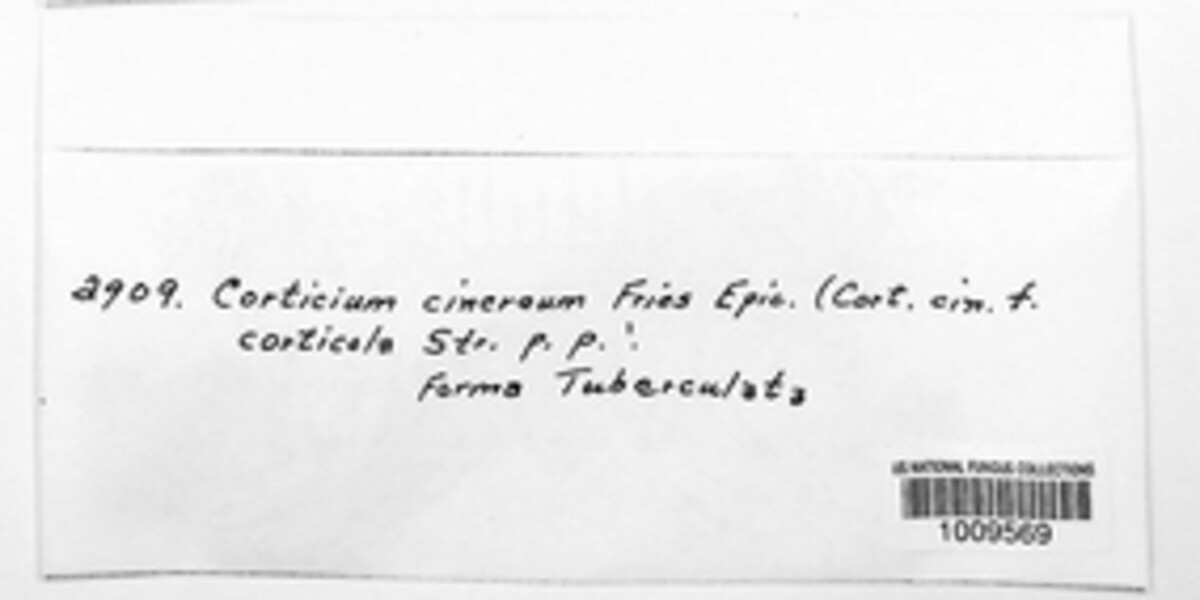 2909. Corticium cinereum Fries Epic. (Cort. cin. f.
corticola Str. p. p. !
Forma Tuberculata
US NATIONAL FUNGUS COLLECTIONS
1009569